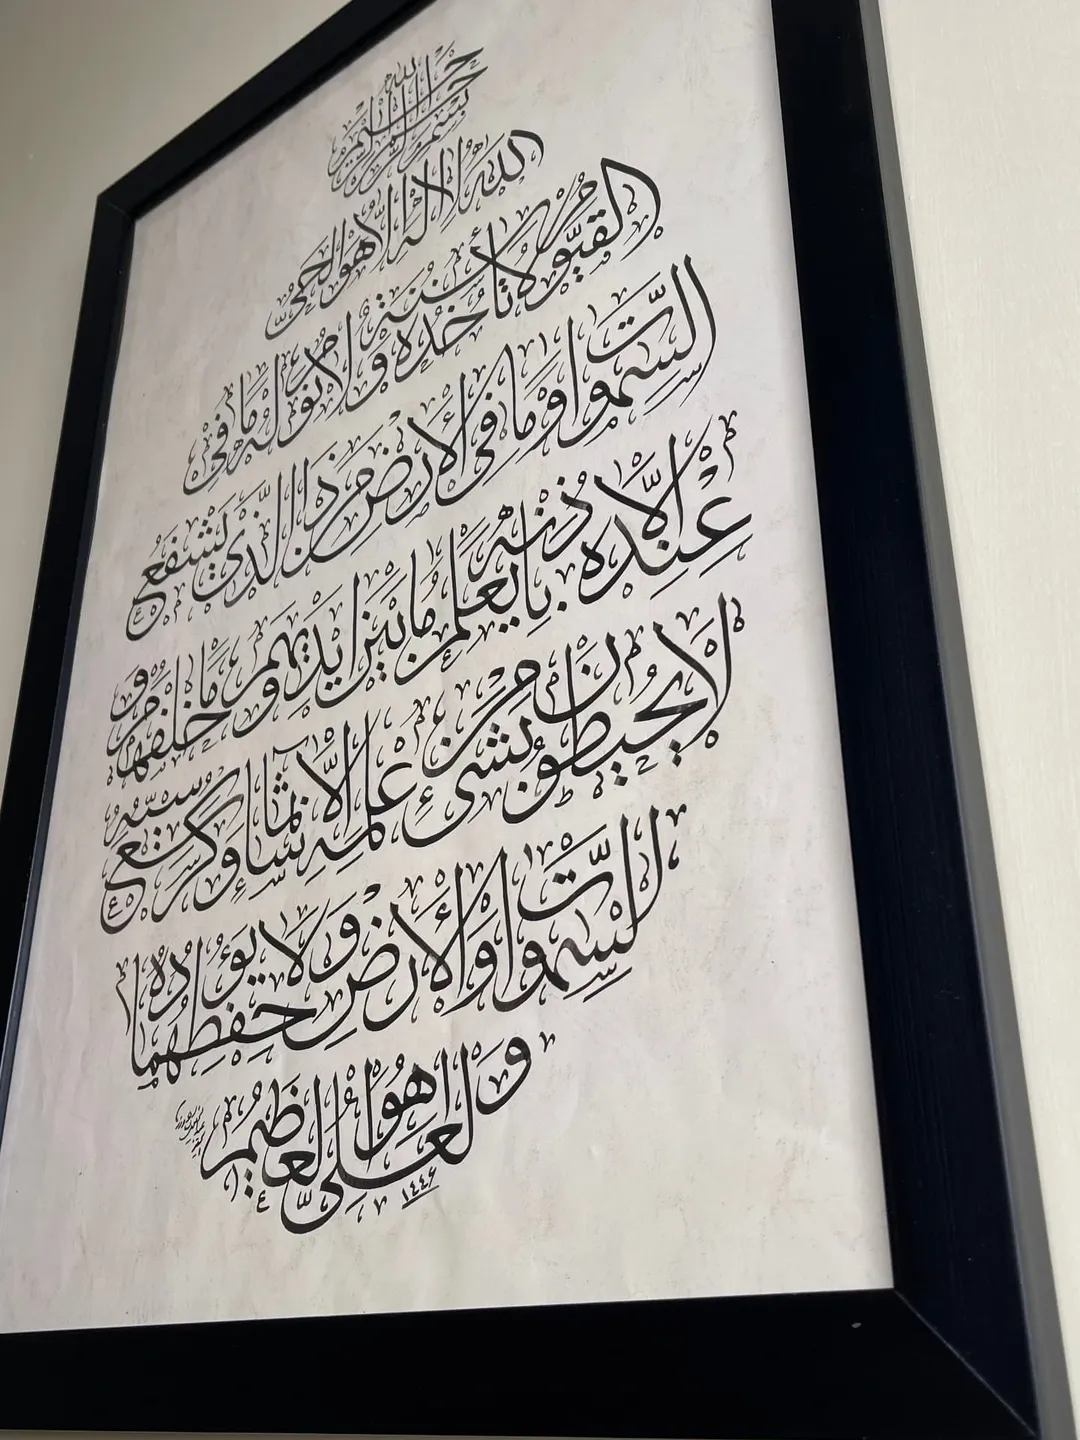 بسم الله الرحمن الرحيم
الله لا اله الا هو الحي
القيوم لا تأخذه سنة ولا نوم له ما في
السموات وما في الأرض من ذا الذي يشفع
عنده الا باذنه يعلم ما بين ايديهم وما خلفهم و
لا يحيطون بشيء من علمه الا بما شاء وسع كرسيه
السموات والأرض ولا يؤده حفظهما
وهو العلي العظيم
١٤٤٦